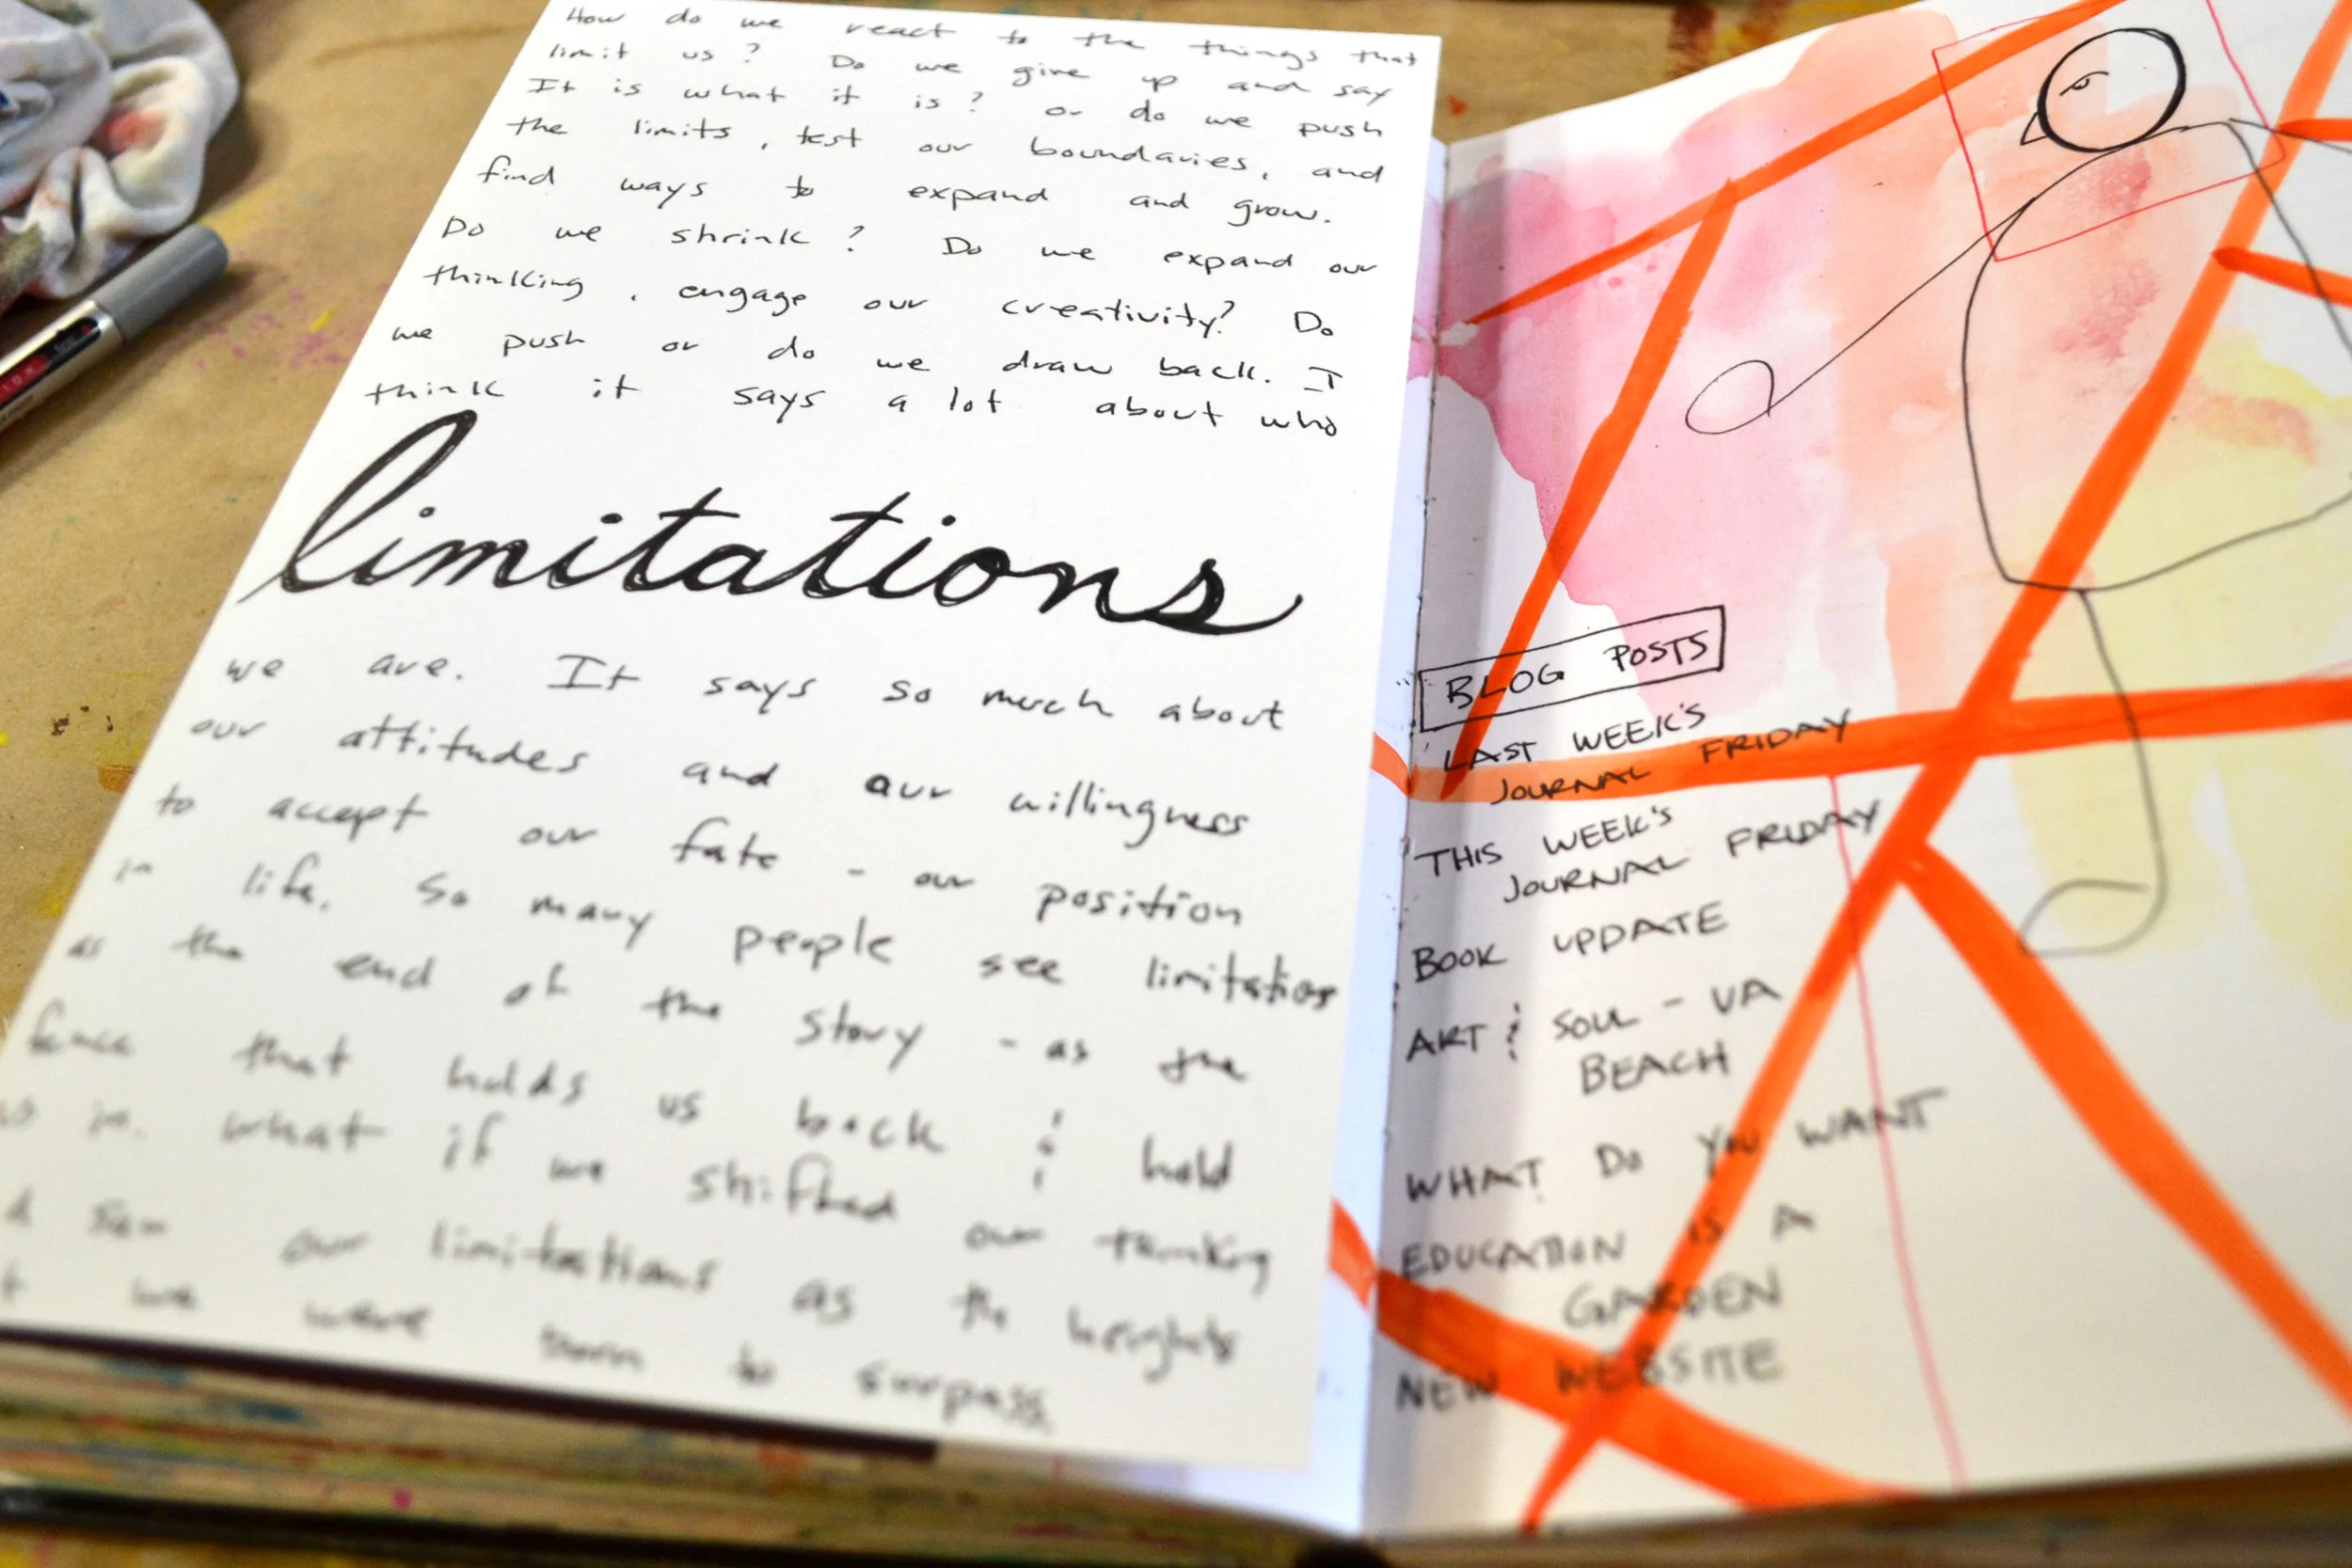 How do we react to the things that
limit us? Do we give up and say
It is what it is? or do we push
the limits, test our boundaries, and
find ways to expand and grow.
Do we shrink? Do we expand our
thinking, engage our creativity? Do
we push or do we draw back. I
think it says a lot about who
limitations
we are. It says so much about
our attitudes and our willingness
to accept our fate - our position
in life. So many people see limitations
as the end of the story - as the
fence that holds us back & hold
us in. what if we shifted our thinking
saw our limitations as the heights
we were born to surpass
BLOG POSTS
LAST WEEK'S
JOURNAL FRIDAY
THIS WEEK'S
JOURNAL FRIDAY
BOOK UPDATE
ART & SOUL - VA
BEACH
WHAT DO YOU WANT
EDUCATION IS A
GARDEN
NEW WEBSITE